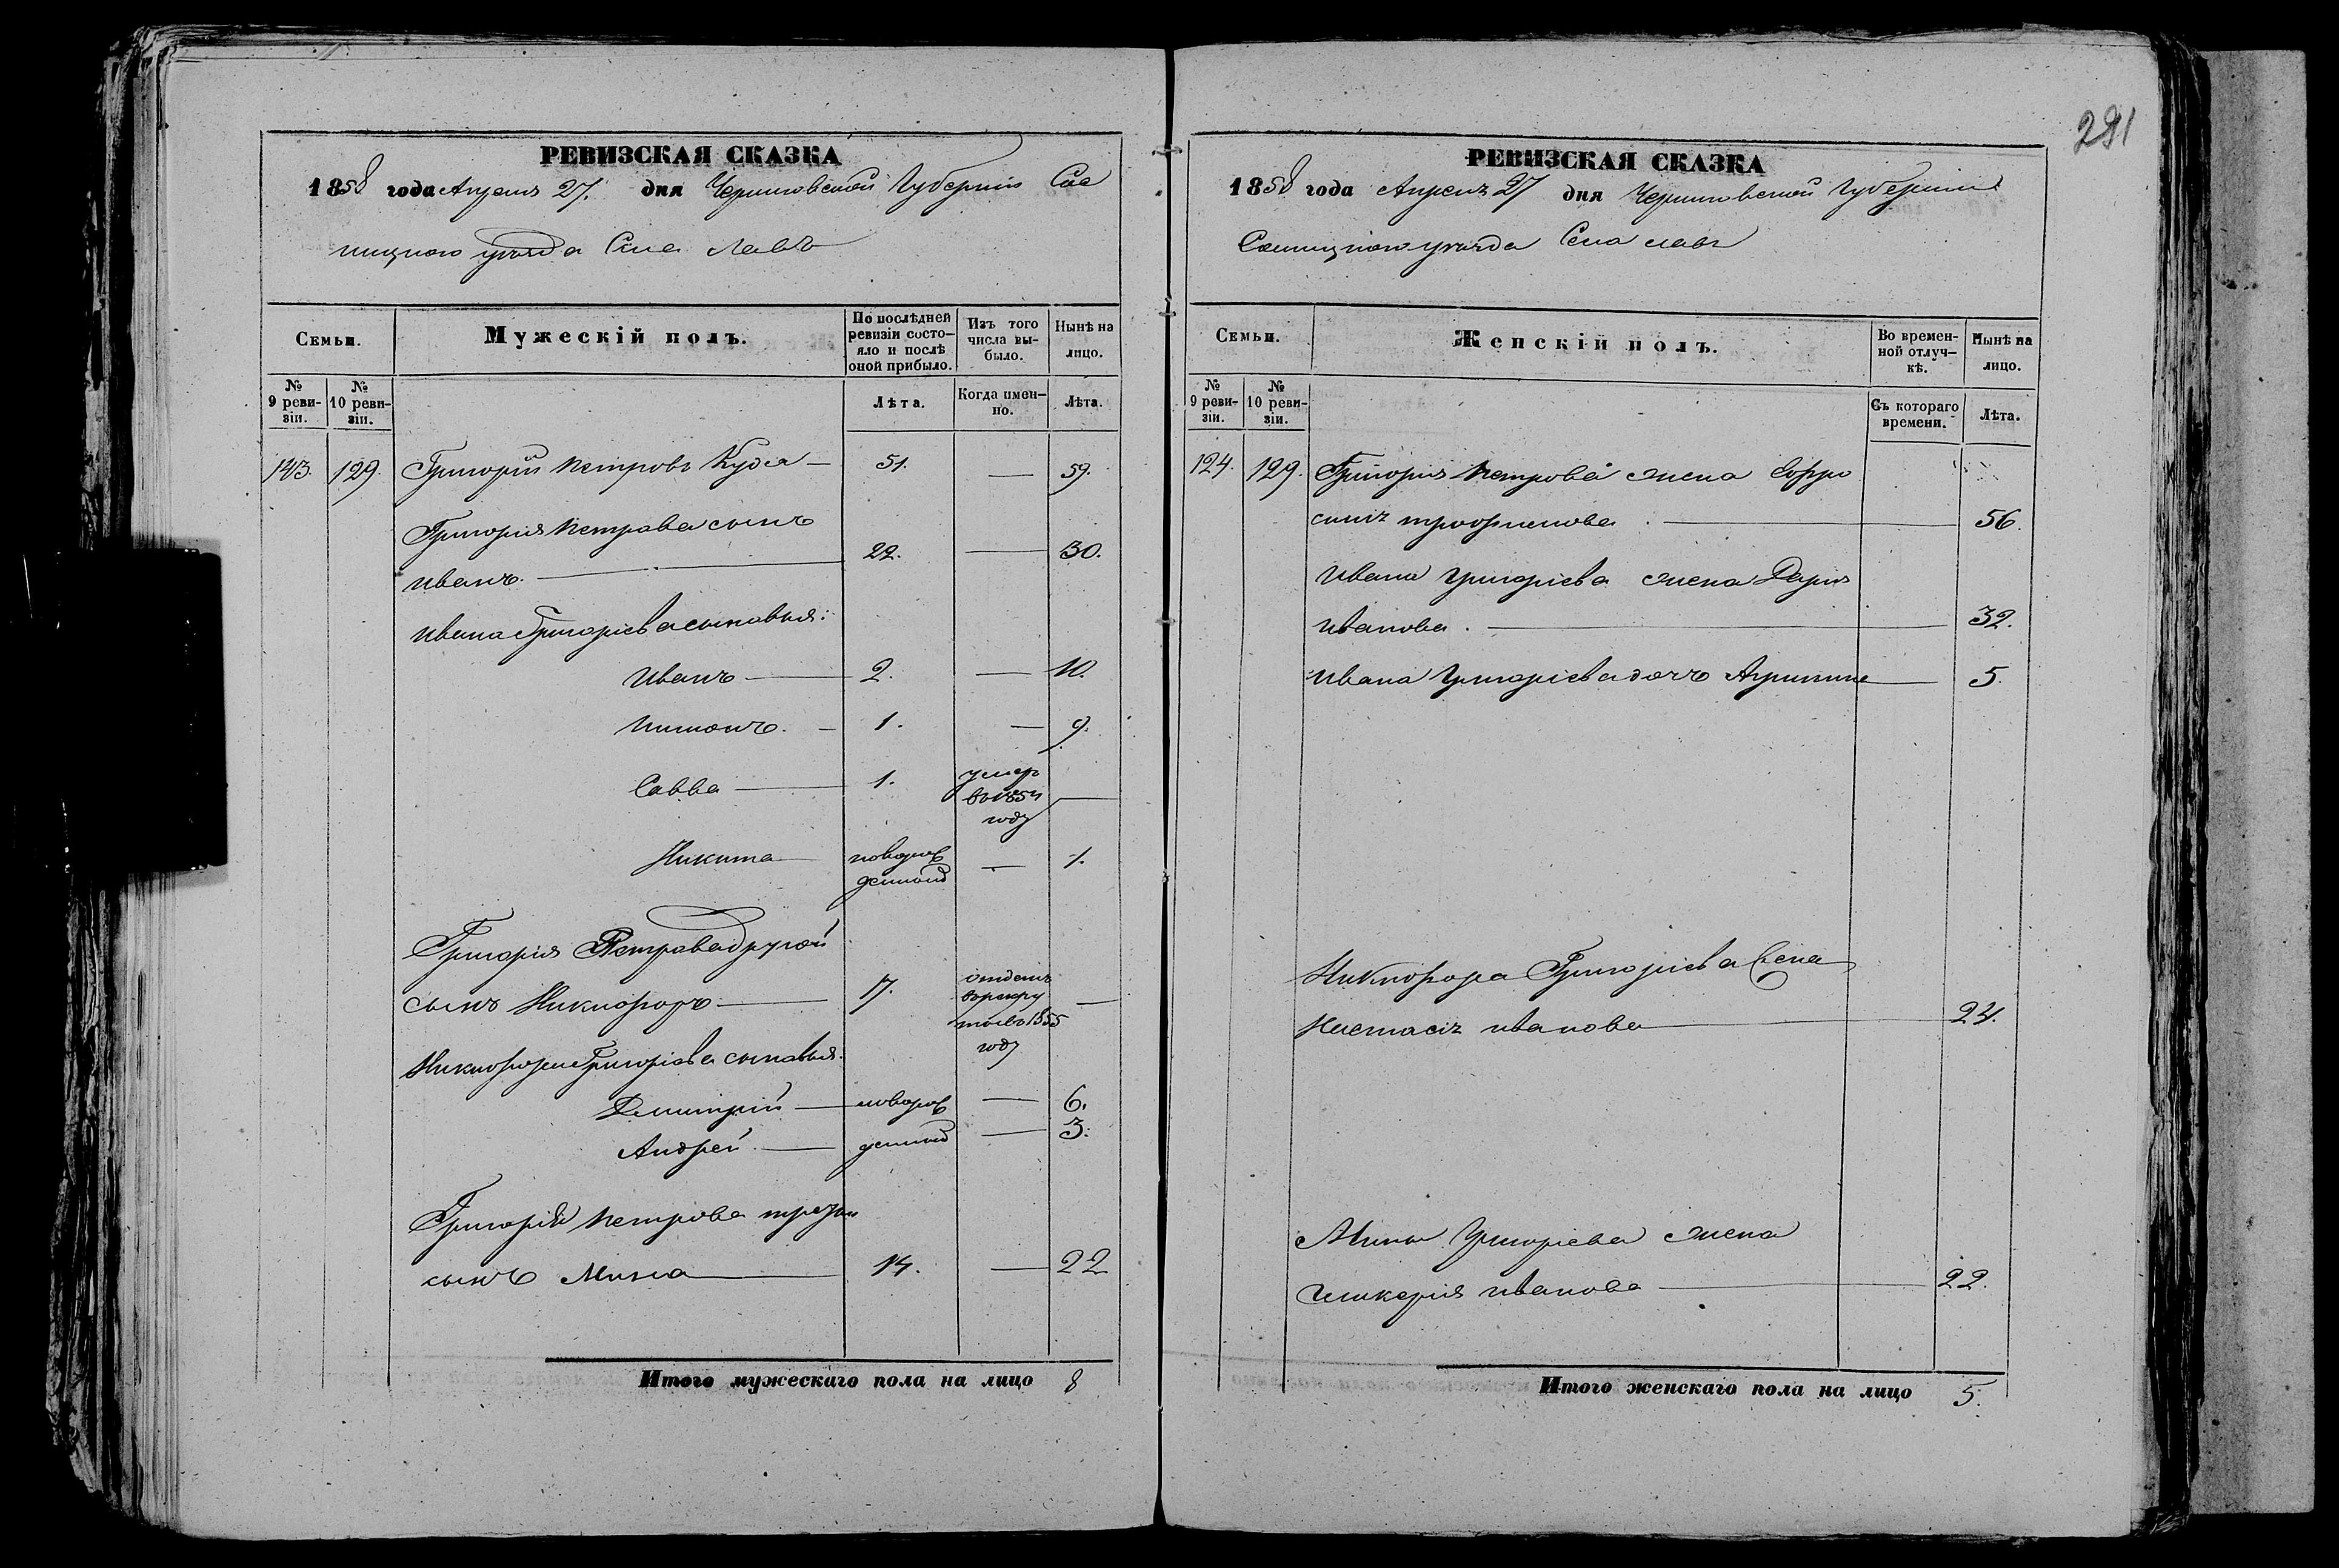 291
РЕВИЗСКАЯ СКАЗКА
1858 года Апреля 27. дня Черниговской Губерніи Сос
ницкого уезда Села Лавъ
Семьи.
Мужескій полъ.
По послѣдней ревизіи состо-яло и послѣ оной прибыло.
Изъ того числа вы-было.
Нынѣ на лицо.
№ 9 реви-зіи.
№ 10 реви-зіи.
Лѣта.
Когда имен-но.
Лѣта.
143. 129. Григорій Петровъ Кудла — 51. — 59.
Григорія Петрова сынъ
Иванъ. — 22. — 30.
Ивана Григоріева сыновья:
Иванъ — 2. — 10.
Пимонъ. — 1. — 9.
Савва — 1. умер
в 1854
году —
Никита — новорож
денный — 1.
Григорія Петрова другой
сынъ Никифоръ — 17. отданъ
в рекру
ты в 1855
году —
Никифора Григоріева сыновья.
Дмитрій — новорож — 6.
Андрей. — денный — 3.
Григорія Петрова третій
сынъ Мина — 14. — 22
Итого мужескаго пола на лицо 8
РЕВИЗСКАЯ СКАЗКА
1858 года Апреля 27 дня Черниговской Губерніи
Сосницкого уезда Села Лавъ
Семьи.
Женскій полъ.
Во времен-ной отлуч-кѣ.
Нынѣ на лицо.
№ 9 реви-зіи.
№ 10 реви-зіи.
Съ котораго времени.
Лѣта.
124. 129. Григорія Петрова жена Ефро
синія Трофименова. — 56.
Ивана Григоріева жена Дарія
Иванова. — 32.
Ивана Григоріева дочъ Агрипина — 5.
Никифора Григоріева жена
Настасія Иванова — 24.
Мины Григорева жена
Гликерія Иванова — 22.
Итого женскаго пола на лицо 5.